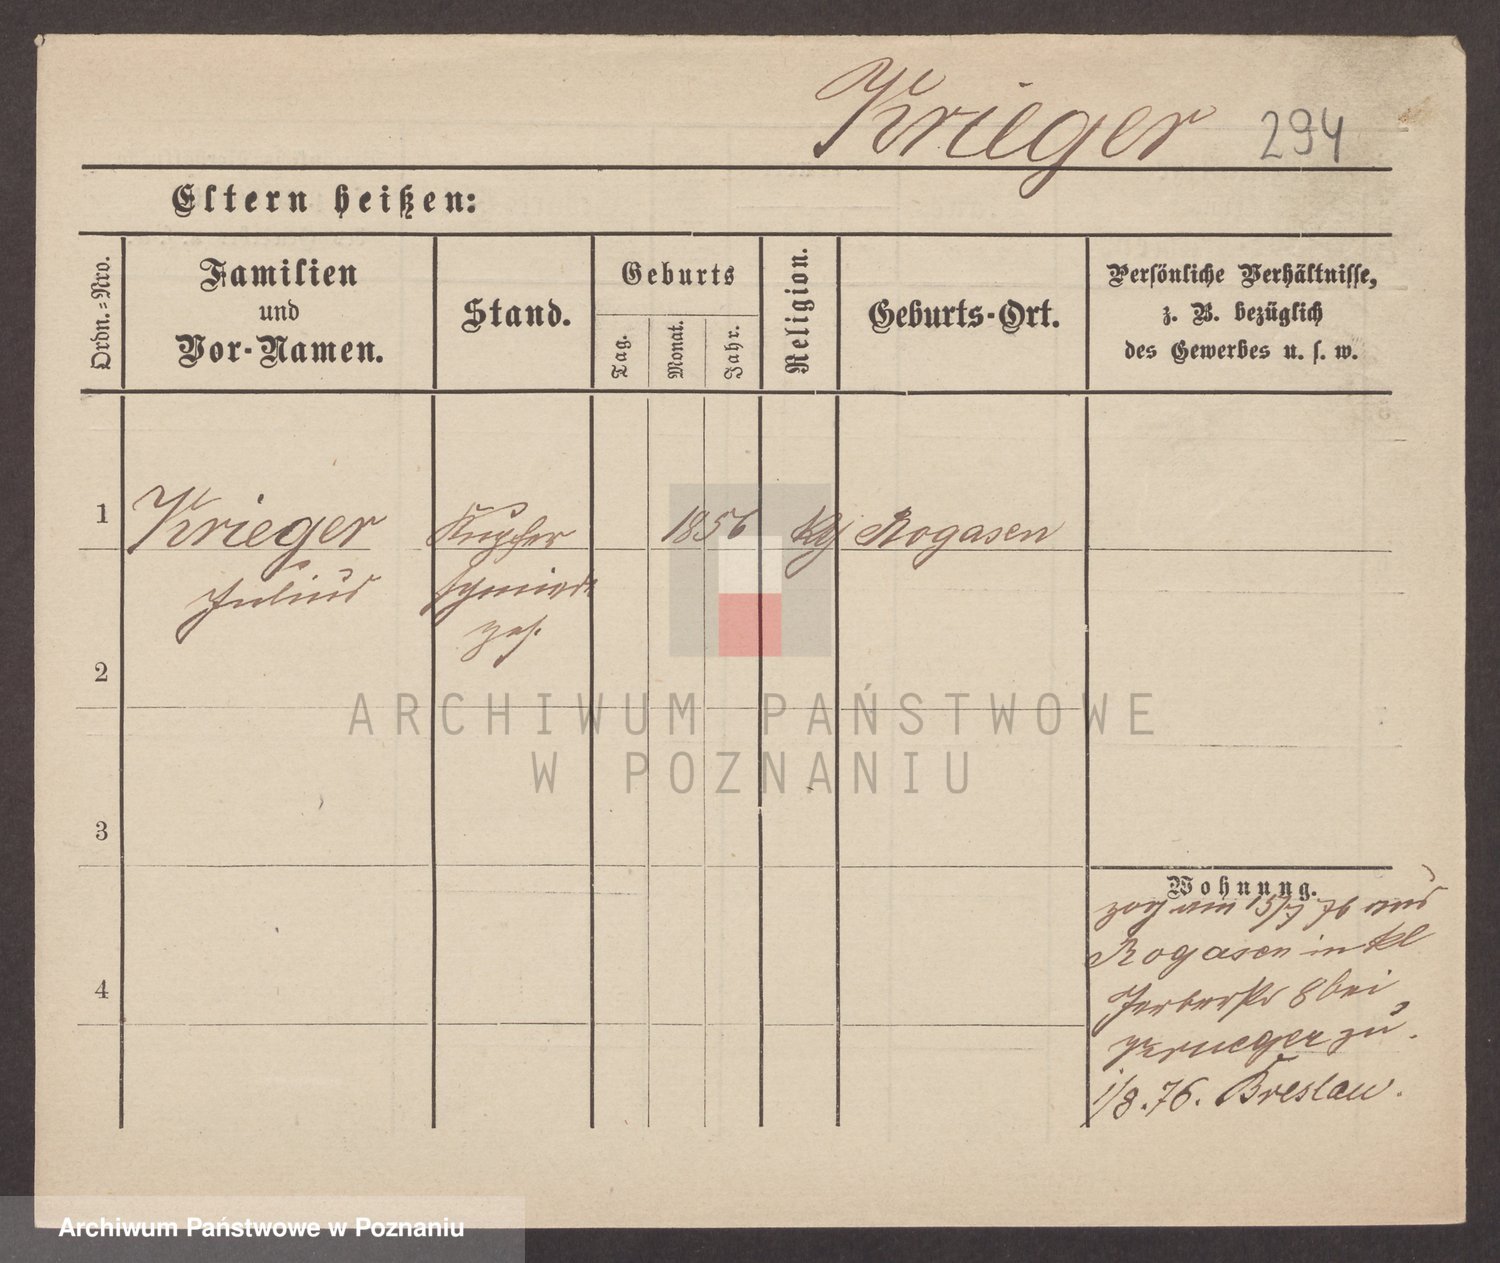 Krieger 294
Eltern heißen:
Ordn.-Nro.
Familien
und
Vor-Namen.
Stand.
Geburts
Tag.
Monat.
Jahr.
Religion.
Geburts-Ort.
Persönliche Verhältnisse,
z. B. bezüglich
des Gewerbes u. s. w.
1 Krieger Kupfer 1856 Rogasen
Julius schmiede
2
ARCHIWUM PAŃSTWOWE
W POZNANIU
3
Wohnung.
zog am 15/7 76 aus
Rogasen in kl
Gerberstr 8 bei
Krueger zu.
4
1/8.76. Breslau.
Archiwum Państwowe w Poznaniu